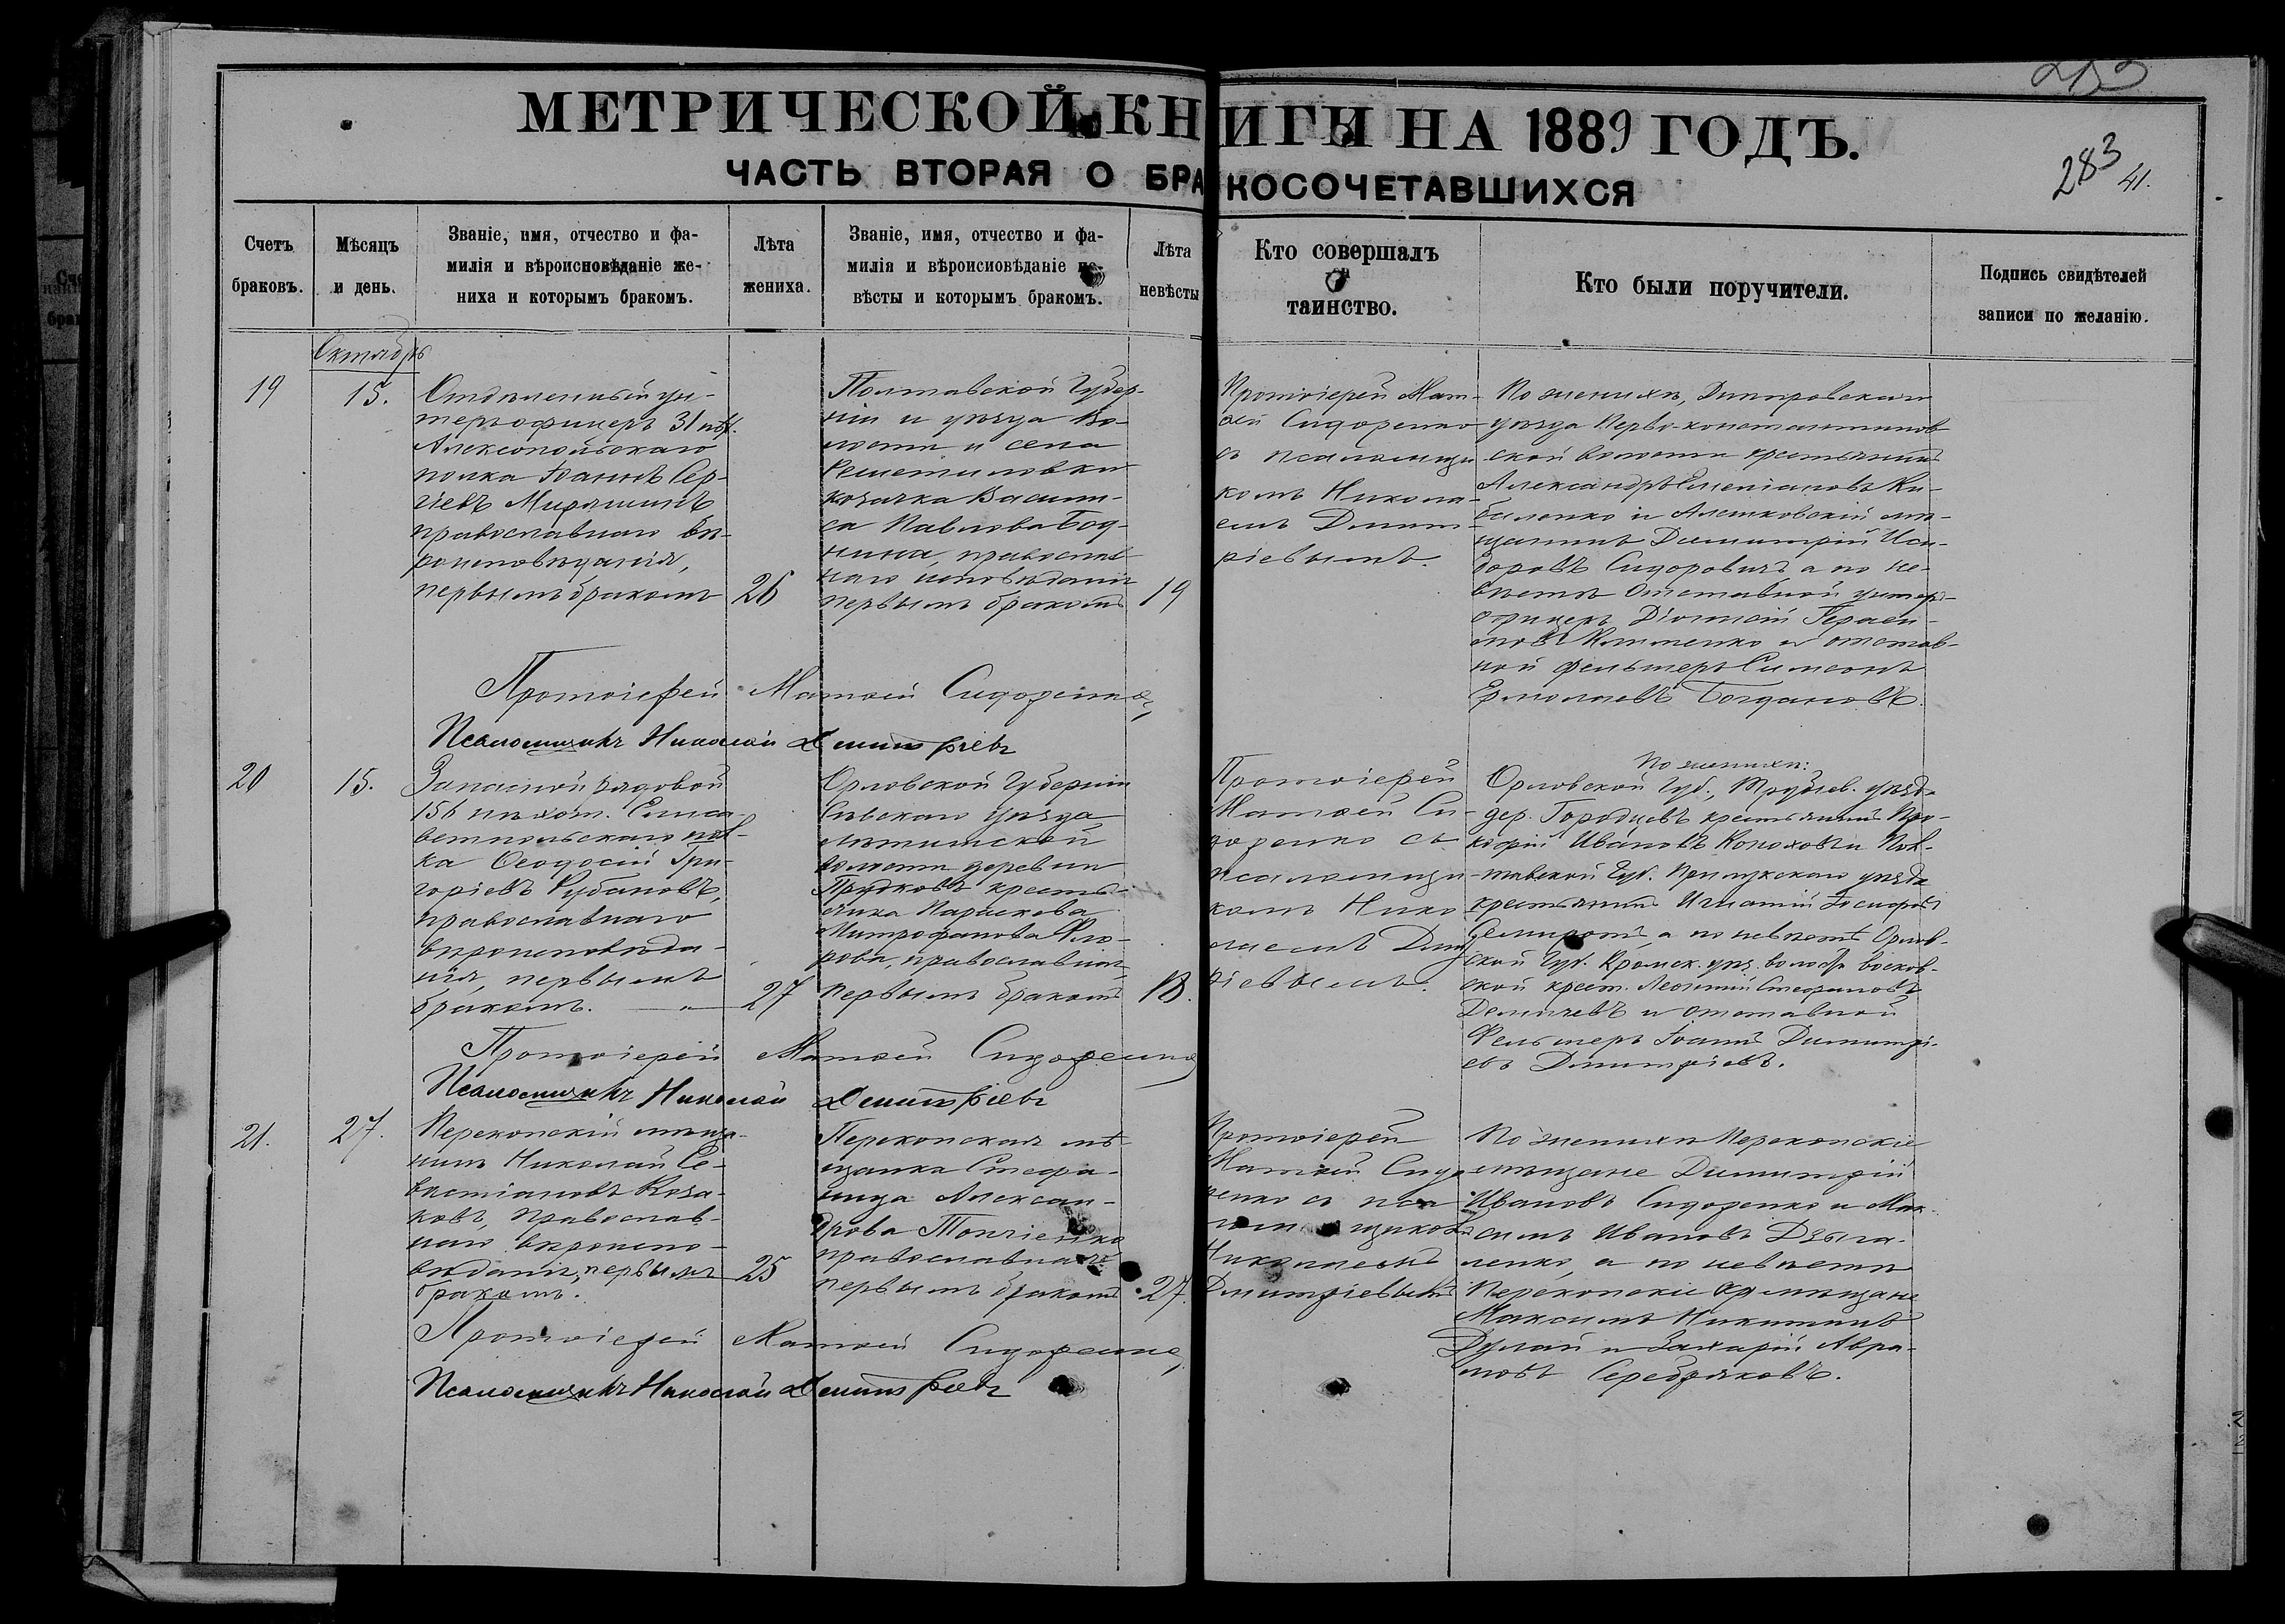 283
МЕТРИЧЕСКОЙ КНИГИ НА 1889 ГОДЪ.
ЧАСТЬ ВТОРАЯ О БРАКОСОЧЕТАВШИХСЯ
283 41.
Счетъ браковъ.
Мѣсяцъ и день.
Званіе, имя, отчество и фа-
милія и вѣроисповѣданіе же-
ниха и которымъ бракомъ.
Лѣта жениха.
Званіе, имя, отчество и фа-
милія и вѣроисповѣданіе не-
вѣсты и которымъ бракомъ.
Лѣта невѣсты
Кто совершалъ таинство.
Кто были поручители.
Подпись свидѣтелей
записи по желанію.
Октябрь
19
15.
Отдѣленный ун-
теръ офицеръ 31 пѣх.
Алексопольскаго
полка Іоаннъ Сер-
гіевъ
православнаго вѣ-
роисповѣданія,
первымъ бракомъ
26
Полтавской Губер-
ніи и уѣзда Во-
лости и села
Решетиловки
козачка Васили-
са Павлова
православ-
наго исповѣданія
первымъ бракомъ
19
Протоіерей Мат-
ѳей Сидоренко
съ псаломщи
комъ Никола-
емъ Димит-
ріевымъ.
По женихѣ, Днѣпровскаго
уѣзда Перво-константинов-
ской волости крестьянинъ
Александръ Емеліановъ Ки-
биленко и Алешковскій мѣ-
щанинъ Димитрій Иси-
доровъ Сидоровичъ а по не-
вѣстѣ Отставной унтеръ-
офицеръ Діонисій Гераси-
мовъ Клименко и отстав-
ной фельшеръ Симеонъ
Ермолаевъ Богдановъ.
Протоіерей Матѳей Сидоренко
Псаломщикъ Николай Димитріевъ
20
15.
Запасной рядовой
156 пѣхот. Елиса-
ветпольскаго пол-
ка Ѳеодосій Гри-
горіевъ Рубановъ,
православнаго
вѣроисповѣда-
нія, первымъ
бракомъ.
27
Орловской Губерніи
Сѣвскаго уѣзда
волости деревни
Прудковъ кресть-
янка Параскева
Митрофанова
православная
первымъ бракомъ
18.
Протоіерей
Матѳей Си-
доренко съ
псаломщи
комъ Нико
лаемъ Димит
ріевымъ.
По женихѣ:
Орловской Губ., Трубчев. уѣзда
дер. Городцевъ крестьянинъ Про-
кофій Ивановъ Конюховъ и Пол-
тавской Губ. Прилукскаго уѣзда
крестьянинъ Игнатій Іосифовъ
а по невѣстѣ Орлов-
ской Губ. Кромск. уѣз. волости
крест. Леонтій Стефановъ
Демичевъ и отставной
Фельшеръ Іоаннъ Димитрі-
евъ Димитріевъ.
Протоіерей Матѳей Сидоренко
Псаломщикъ Николай Димитріевъ
21.
27.
Перекопскій мѣща-
нинъ Николай Се-
вастіановъ Коза-
ковъ, Православ-
наго вѣроиспо-
вѣданія, первымъ
бракомъ.
25
Перекопская мѣ-
щанка Стефа-
нида Алексан-
дрова Топчіенко
православная
первымъ бракомъ
27.
Протоіерей
Матѳей Сидо
ренко съ пса
ломщикомъ
Николаемъ
Димитріевымъ
По женихѣ Перекопскіе
мѣщане Димитрій
Ивановъ Сидоренко и Мак-
симъ Ивановъ Дзыга-
ленко, а по невѣстѣ
Перекопскіе мѣщане
Максимъ Никитинъ
Дулай и Захарій Авра-
мовъ Серебряковъ.
Протоіерей Матѳей Сидоренко
Псаломщикъ Николай Димитріевъ